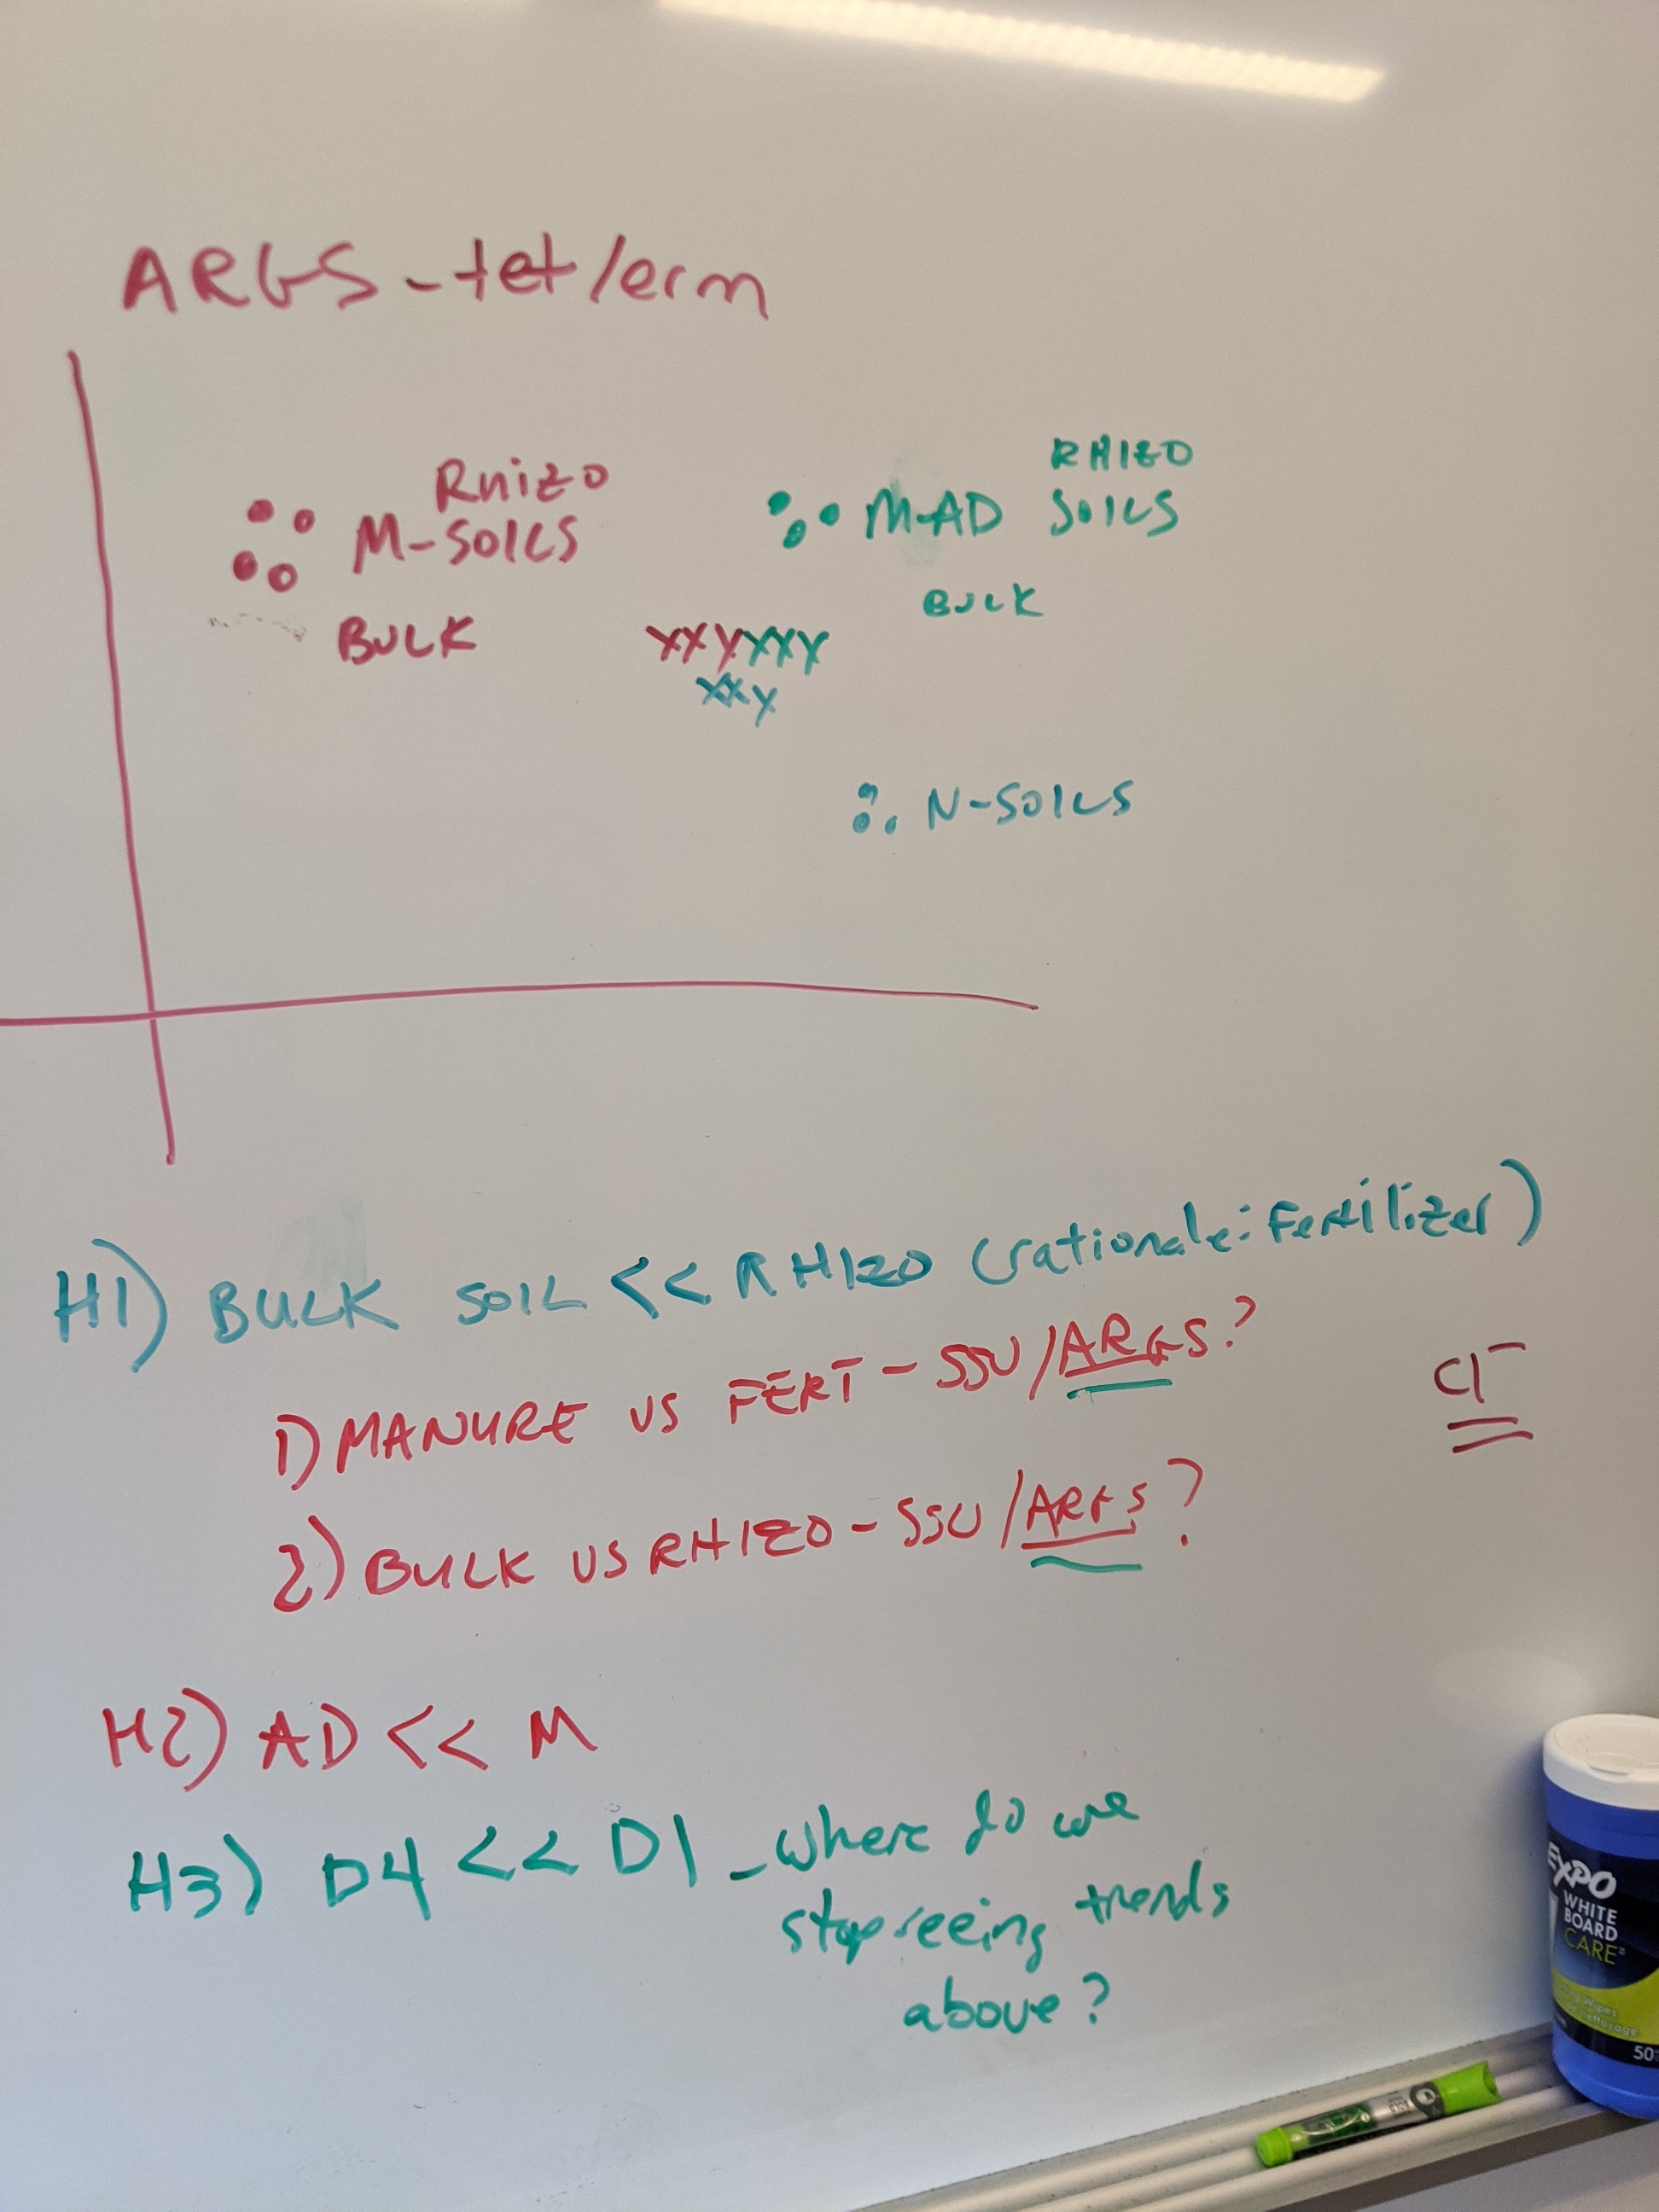 ARGS - tet/erm
Rhizo
M-SOILS
BULK
RHIZO
M-AD SOILS
BULK
XXYXXY
XXY
N-SOILS
H1) BULK SOIL << RHIZO (rationale: Fertilizer)
1) MANURE VS FERT - SSU/ARGS?
Cl⁻
2) BULK VS RHIZO - SSU/ARGS?
H2) AD << M
H3) D4 << D1 - where do we
stop seeing trends
above?
EXPO
WHITE
BOARD
CARE
Wipes
50